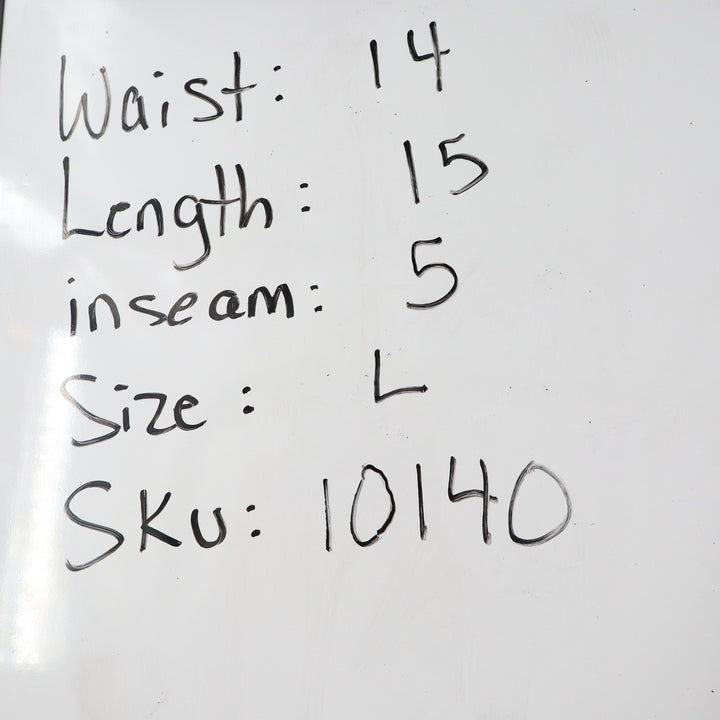 Waist: 14
Length: 15
inseam: 5
Size: L
SKU: 10140